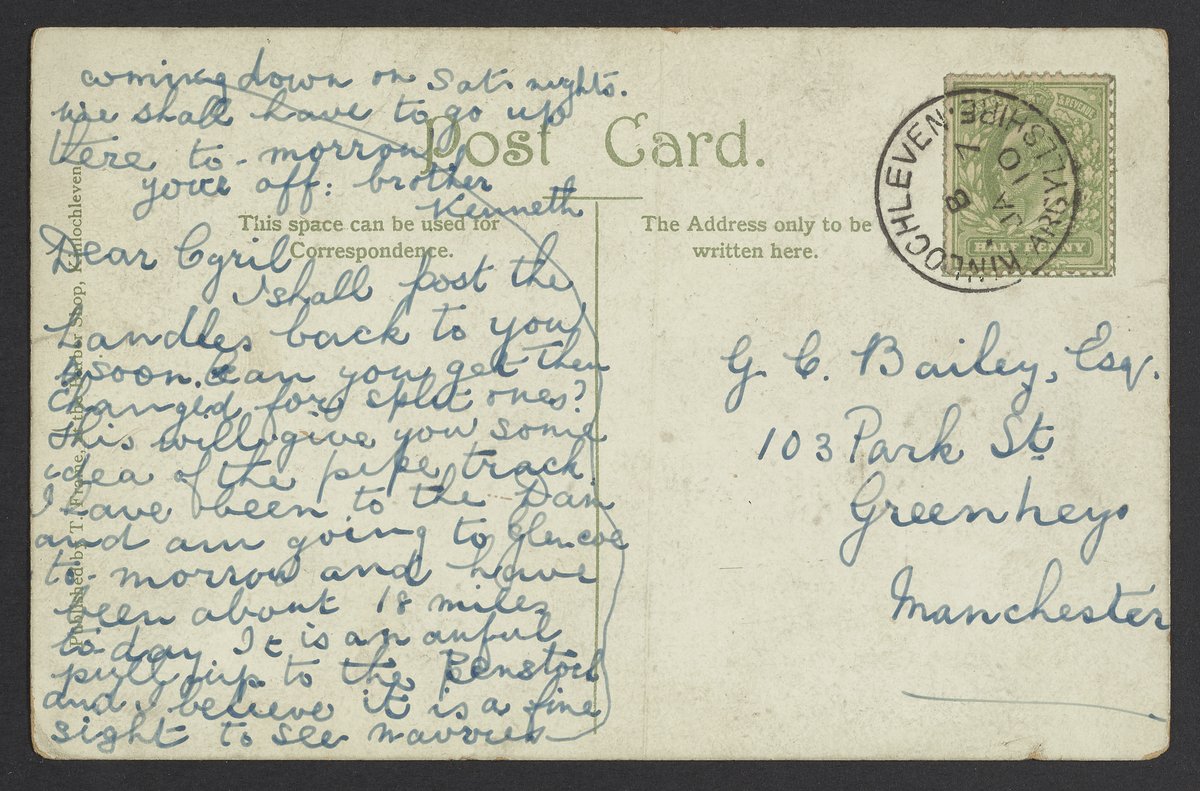 coming down on Sat. nights.
we shall have to go up
there to-morrow
your aff: brother
Kenneth
Post Card.
This space can be used for
Correspondence.
The Address only to be
written here.
Dear Cyril
I shall post the
handles back to you
soon. Can you get them
changed for split ones?
This will give you some
idea of the pipe track.
I have been to the Dam
and am going to Glencoe
to-morrow and have
been about 18 miles
to-day. It is an awful
pull up to the Penstock
and I believe it is a fine
sight to see navvies
G. C. Bailey, Esq.
103 Park St.
Greenheys
Manchester
KINLOCHLEVEN. ARGYLLSHIRE
JA
10
HALF PENNY
Published by T. Frame, at the Barber Shop, Kinlochleven